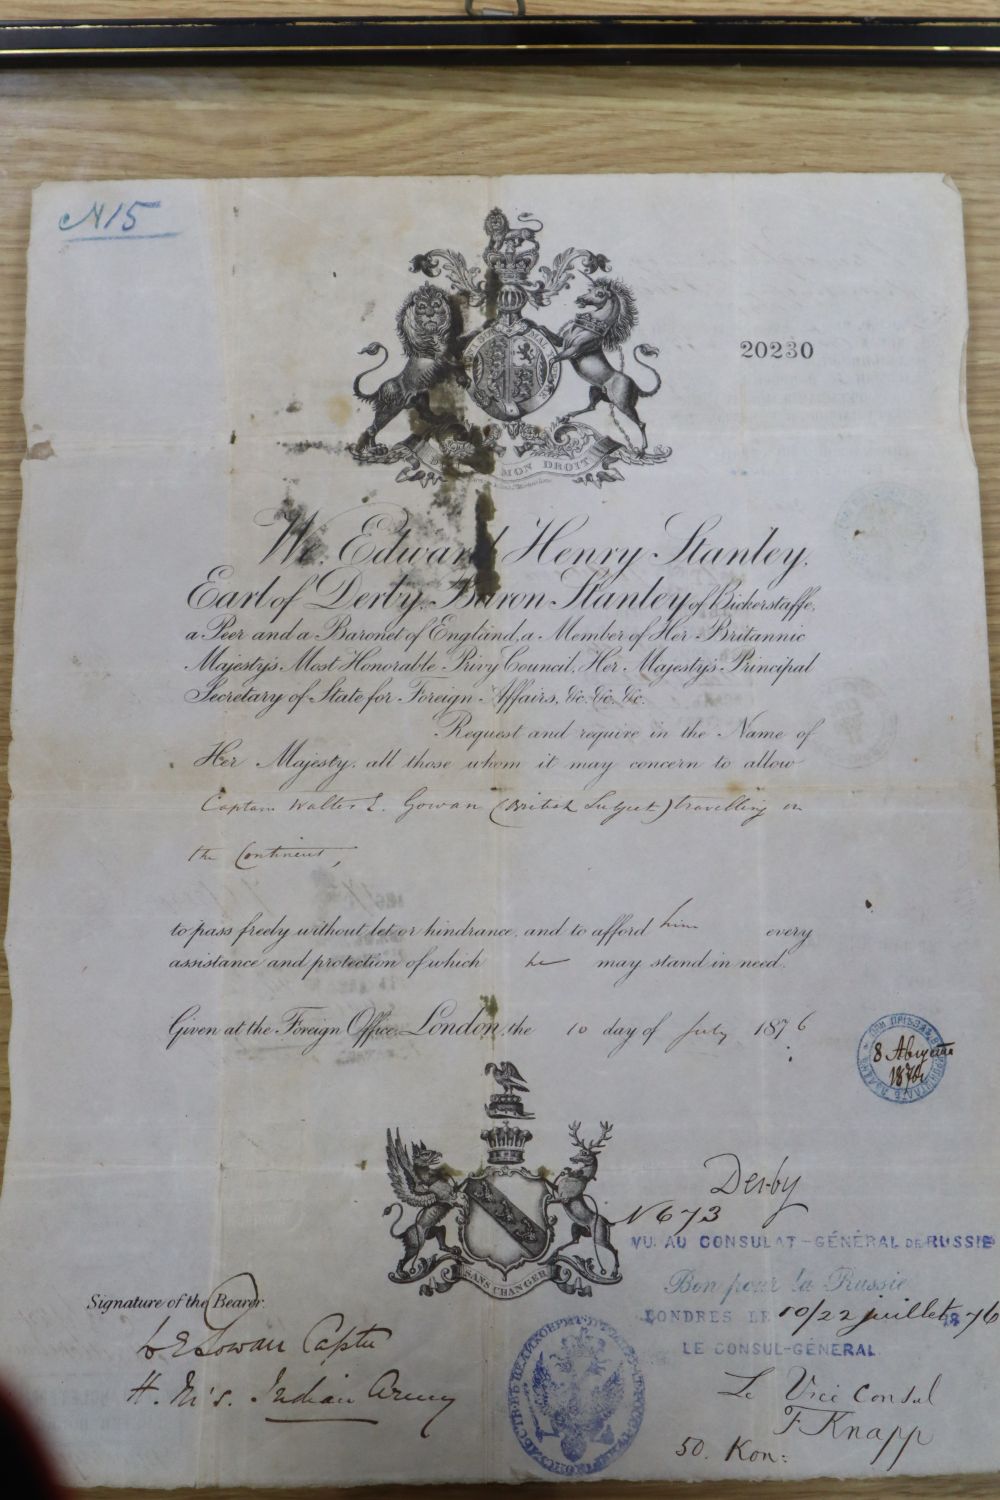 N15
20230
MON DROIT
We, Edward Henry Stanley,
Earl of Derby, Baron Stanley of Bickerstaffe,
a Peer and a Baronet of England, a Member of Her Britannic
Majesty's Most Honorable Privy Council, Her Majesty's Principal
Secretary of State for Foreign Affairs, &c. &c. &c.
Request and require in the Name of
Her Majesty, all those whom it may concern to allow
Captain Walter E. Gowan (British Subject) travelling on
the Continent,
to pass freely without let or hindrance, and to afford him every
assistance and protection of which he may stand in need.
Given at the Foreign Office, London, the 10 day of July 1876
8 Августа
1876
Derby
N 673
VU AU CONSULAT-GÉNÉRAL DE RUSSIE
Bon pour la Russie
LONDRES LE 10/22 juillet 1876
LE CONSUL-GÉNÉRAL
SANS CHANGER
Signature of the Bearer.
W E Gowan Captn
H. M's. Indian Army
Le Vice Consul
F Knapp
50. Кон: